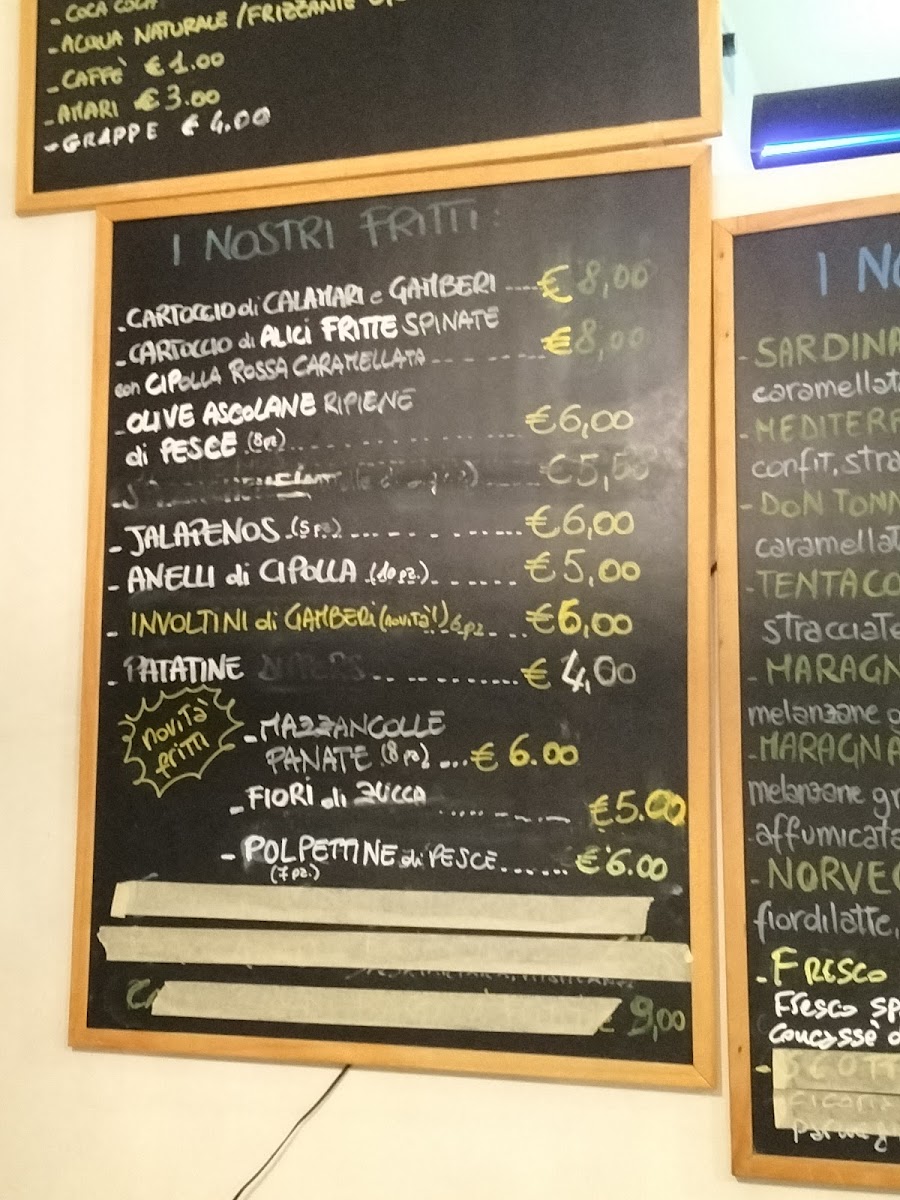 - COCA COLA
- ACQUA NATURALE / FRIZZANTE
- CAFFÈ €1.00
- AMARI €3.00
- GRAPPE €4.00
I NOSTRI FRITTI:
- CARTOCCIO di CALAMARI e GAMBERI ---- €8,00
- CARTOCCIO di ALICI FRITTE SPINATE
con CIPOLLA ROSSA CARAMELLATA ------- €8,00
- OLIVE ASCOLANE RIPIENE
di PESCE (8pz) ............ €6,00
€5,50
- JALAPENOS (5pz.) ... ------- €6,00
- ANELLI di CIPOLLA (10 pz.)....... €5,00
- INVOLTINI di GAMBERI (novità!) 6pz ---- €6,00
- PATATINE ............ € 4,00
novità
frim
- MAZZANCOLLE
PANATE (8 pz) ... € 6.00
- FIORI di ZUCCA ........ €5.00
- POLPETTINE di PESCE...... €6.00
(7 pz.)
9,00
I NO
- SARDINA
caramellat
- MEDITERR
confit, stra
- DON TONN
caramellat
- TENTACO
stracciate
- MARAGN
melanzane g
- MARAGNA
melanzane gr
affumicata
- NORVEG
fiordilatte,
- FRESCO
Fresco sp
concassè d